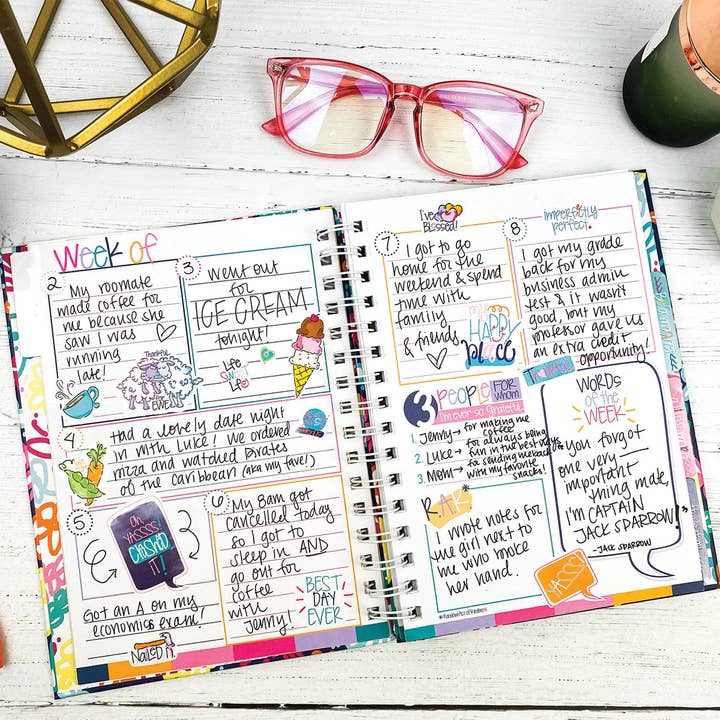 Week of
2
My roomate
made coffee for
me because she
saw I was
running
late!
Thankful
EWENESS
3
Went out
for
ICE CREAM
tonight!
Life is
SWEET
Life
4
Had a lovely date night
in with Luke! We ordered
pizza and watched Pirates
of the Caribbean (aka my fave!)
5
OH,
YASSSS
CRUSHED
IT!
Got an A on my
economics exam!
Nailed it.
6
My 8am got
cancelled today
so I got to
sleep in AND
go out for
coffee
with
Jenny!
BEST
DAY
EVER
I'VE
Blessed!
7
I got to go
home for the
weekend & spend
time with
family
& friends
my
HAPPY
place
imperfectly
perfect.
8
I got my grade
back for my
business admin
test & it wasn't
good, but my
professor gave us
an extra credit
opportunity!
3 PEOPLE FOR
WHOM
I'm ever so grateful
1. Jenny → for making me
coffee
2. Luke → for always being
fun in the best ways
3. Mom → for sending me back
with my favorite
snacks!
R.A.K.
I wrote notes for
the girl next to
me who broke
her hand.
*Random Act of Kindness
YASSS!
WORDS
of the
WEEK
"You forgot
one very
important
thing mate,
I'm CAPTAIN
JACK SPARROW!"
-JACK SPARROW